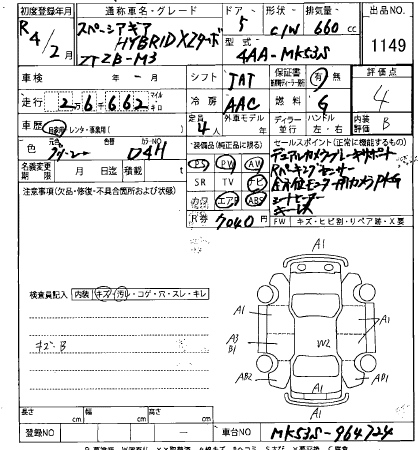 初度登録年月 通称車名・グレード ドア 形状 排気量 出品NO.
R4/2月 スペーシアギア HYBRID XZターボ 5 C/W 660cc 1149
ZTZB-M3 型式 4AA-MK53S
車検 年 - 月 シフト IAT 保証書 有・無 評価点
走行 26662 マイル キロ 冷房 AAC 燃料 G 4
車歴 自家用・レンタ・事業用( ) 定員 4人 外車モデル 年 ディーラー 並行 ハンドル 左・右 内装 B 評価
色 元色 グリーン 色替 カラーNO D4H
装備品(純正品に限る) セールスポイント(正常に機能するもの)
名義変更期限 月 日迄 積載 t
PS PW AW デュアルカメラブレーキサポート
SR TV ナビ Rパーキングセンサー
カワ エアB ABS 全方位モニター用カメラPKG
シートヒーター
R券 7040円 キーレス
FW キズ・ヒビ割・リペア跡・X要
注意事項(欠品・修復・不具合箇所および状態)
検査員記入 内装 キズ・汚レ・コゲ・穴・スレ・キレ
キズB
A1
A1 A1
A1
A3
B1
W2
A1
AB2 AB1
A1
A1
長さ cm 幅 cm 高さ cm
登録NO - 車台NO MK53S-964724